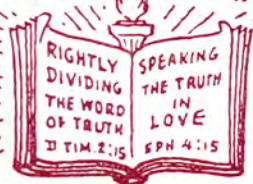 RIGHTLY
DIVIDING
THE WORD
OF TRUTH
II TIM. 2:15
SPEAKING
THE TRUTH
IN
LOVE
EPH 4:15